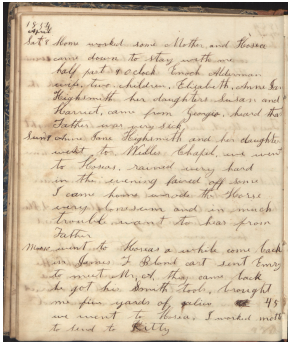 1854
April
Sat 8 Home worked some Mother and Hosea
came down to stay with me
half past 4 Oclock Enoch Alderman
two children, Elizabeth, Anna Jane
Highsmith her daughters Susan and
Harriet, came from Georgia, heard that
Father was very sick
Sun 9 Jane Highsmith and her daughter
went to Wells Chapel, we went
to Hoseas, rained very hard
in the evening faired off some
I came home the Horse
very and in much
trouble want to hear from
Father
went to Hoseas a while come back
in James F cart sent
to meet they came back
he got her Smith tools, brought
me five yards of calico 45
we went to Hoseas I worked
to tend to Kitty